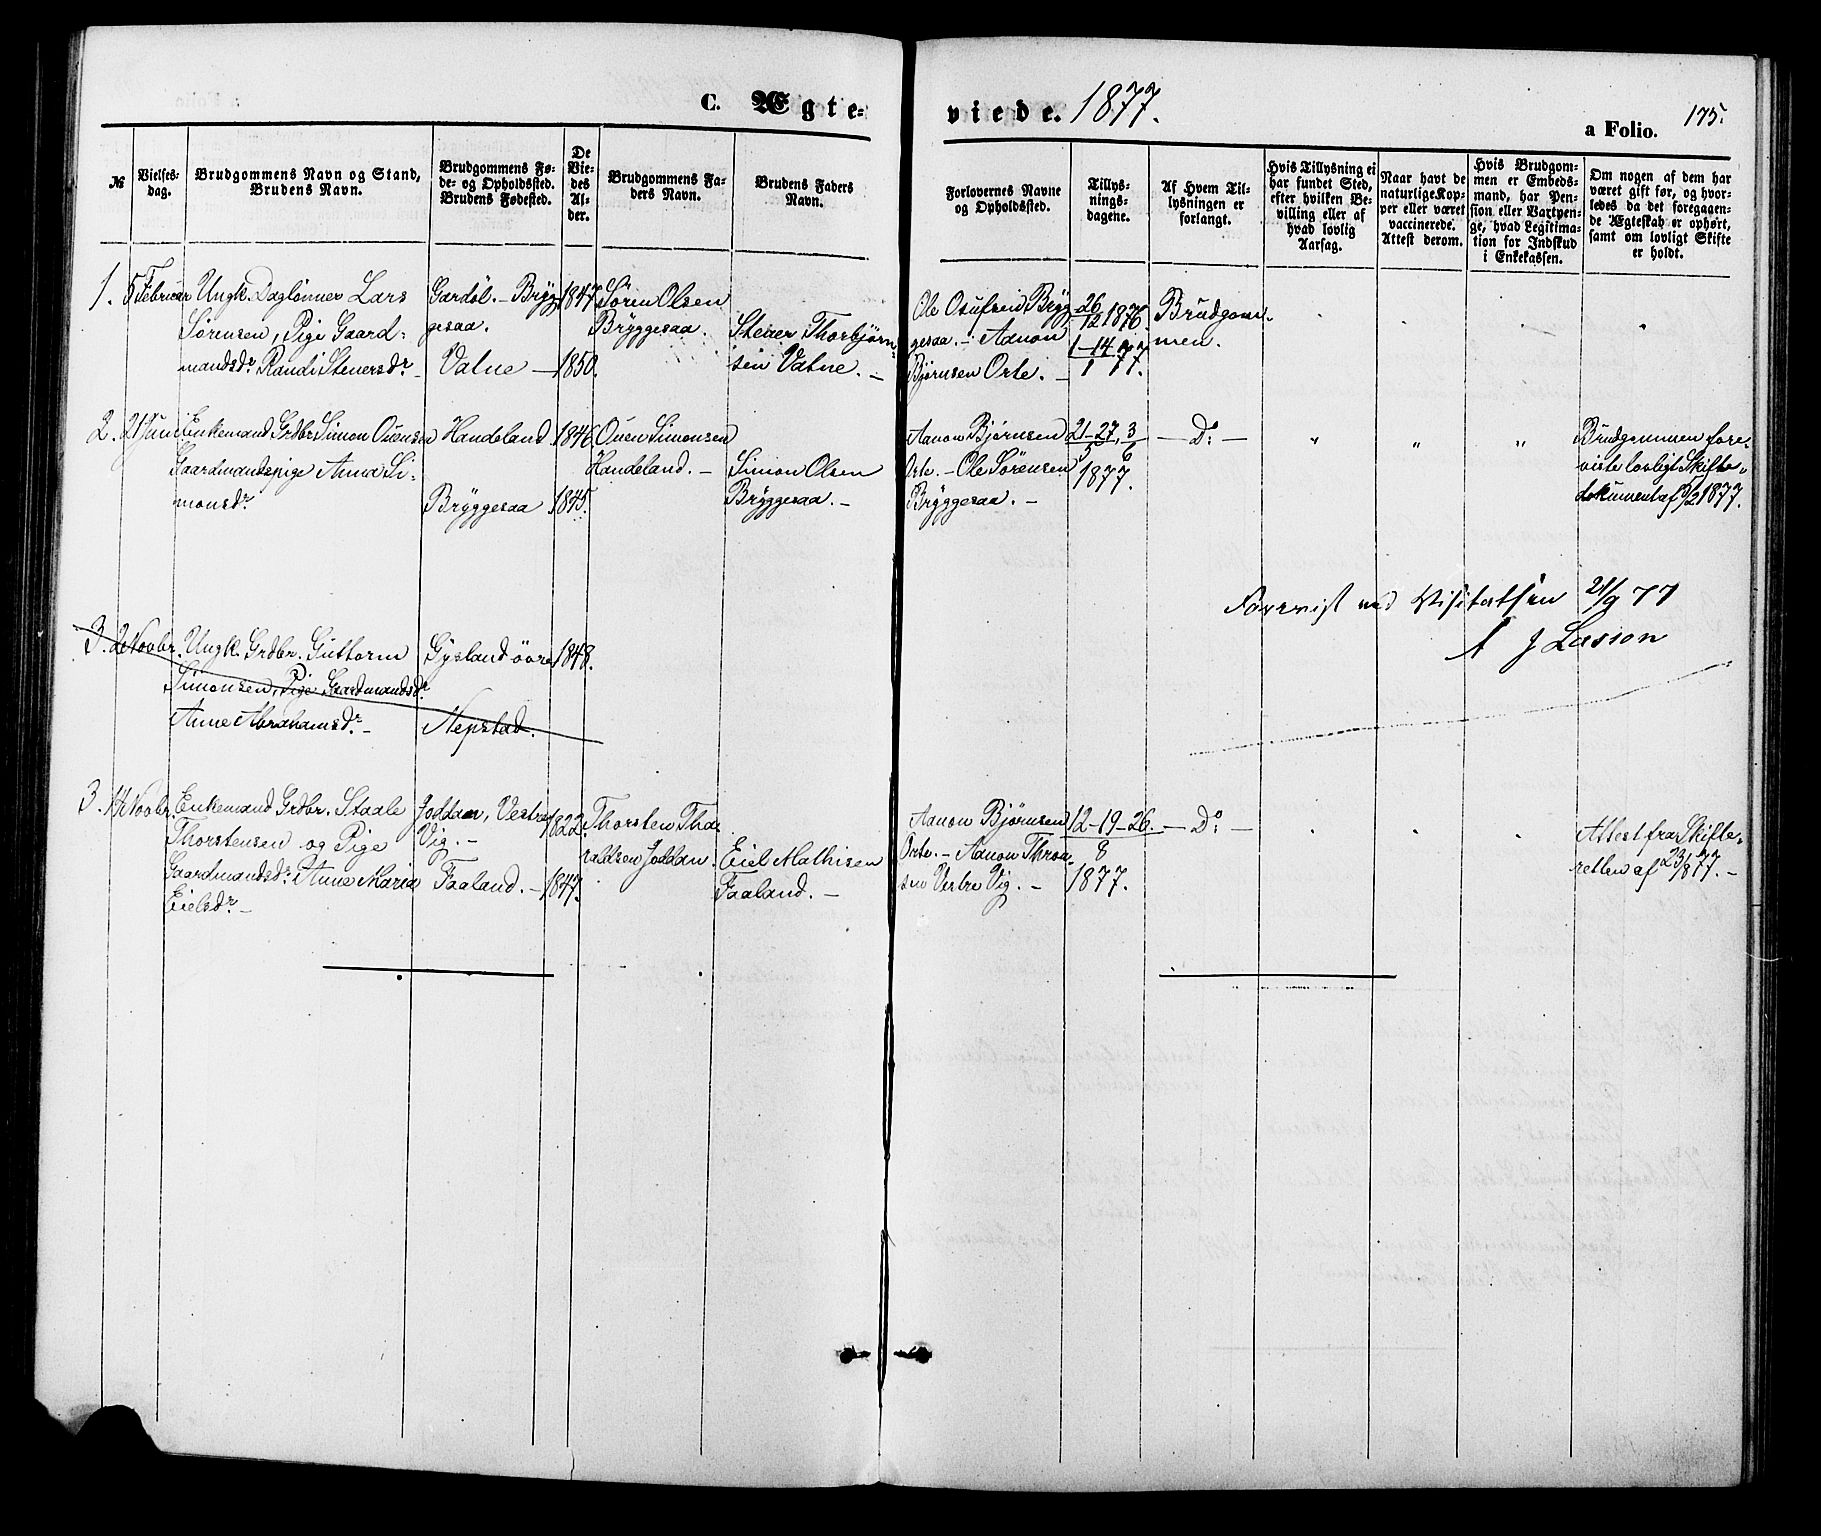 C. Ægte-
viede. 1877.
a Folio. 175.
№
Vielses-
dag.
Brudgommens Navn og Stand,
Brudens Navn.
Brudgommens Fø-
de- og Opholdssted.
Brudens Fødested.
De
Vie-
des
Al-
der.
Brudgommens Fa-
ders Navn.
Brudens Faders
Navn.
Forlovernes Navne
og Opholdssted.
Tillys-
nings-
dagene.
Af Hvem Til-
lysningen er
forlangt.
Hvis Tillysning ei
har fundet Sted,
efter hvilken Be-
villing eller af
hvad lovlig
Aarsag.
Naar havt de
naturlige Kop-
per eller været
vaccinerede.
Attest derom.
Hvis Brudgom-
men er Embeds-
mand, har Pen-
sion eller Vartpen-
ge, hvad Legitima-
tion for Indskud
i Enkekassen.
Om nogen af dem har
været gift før, og hvor-
ledes da det foregagen-
de Ægteskab er ophørt,
samt om lovligt Skifte
er holdt.
1. 5 Februar
Ungk. Daglønner Lars
Sørensen, Pige Gaard-
mandsdr. Randi Stenersdr.
Gardøl. - Bryg-
gesaa.
Vatne -
1847
1850.
Søren Olsen
Bryggesaa.
Stener Thorbjørn-
sen Vatne. -
Ole Osufsen Bryg-
gesaa. - Aanon
Bjørnsen Orte. -
26/12 1876.
1-14/1 77.
Brudgom-
men.
2. 21 Juni
Enkemand Grdbr. Simon Ouensen
Gaardmandspige Anna Si-
monsdr.
Handeland
Bryggesaa
1846.
1845.
Ouen Simonsen
Handeland. -
Simon Olsen
Bryggesaa. -
Aanon Bjørnsen
Orte. - Ole Sørensen
Bryggesaa. -
21-27/5, 3/6
1877.
- Do: -
" " "
Brudgommen fore-
viste lovligt Skifte-
dokument af 9/2 1877.
Forevist ved Visitatsen 21/9 77
J Lasson
3. 2 Novbr.
Ungk. Grdbr. Guttorm
Simonsen, Pige Gaardmandsdr.
Anne Abrahamsdr. -
Gysland øvre
Nepstad.
1848.
3. 14 Novbr.
Enkemand Grdbr. Staale
Thorstensen og Pige
Gaardmandsdr. Anne Maria
Eielsdr. -
Joddan, Vestre
Vig. -
Faaland. -
1822.
1847.
Thorsten Tho-
raldsen Joddan.
Eiel Mathisen
Faaland. -
Aanon Bjørnsen
Orte. - Aanon Thron-
sen Vestre Vig. -
12-19-26./8
1877.
- Do: -
Attest fra Skifte-
retten af 23/8 77. -